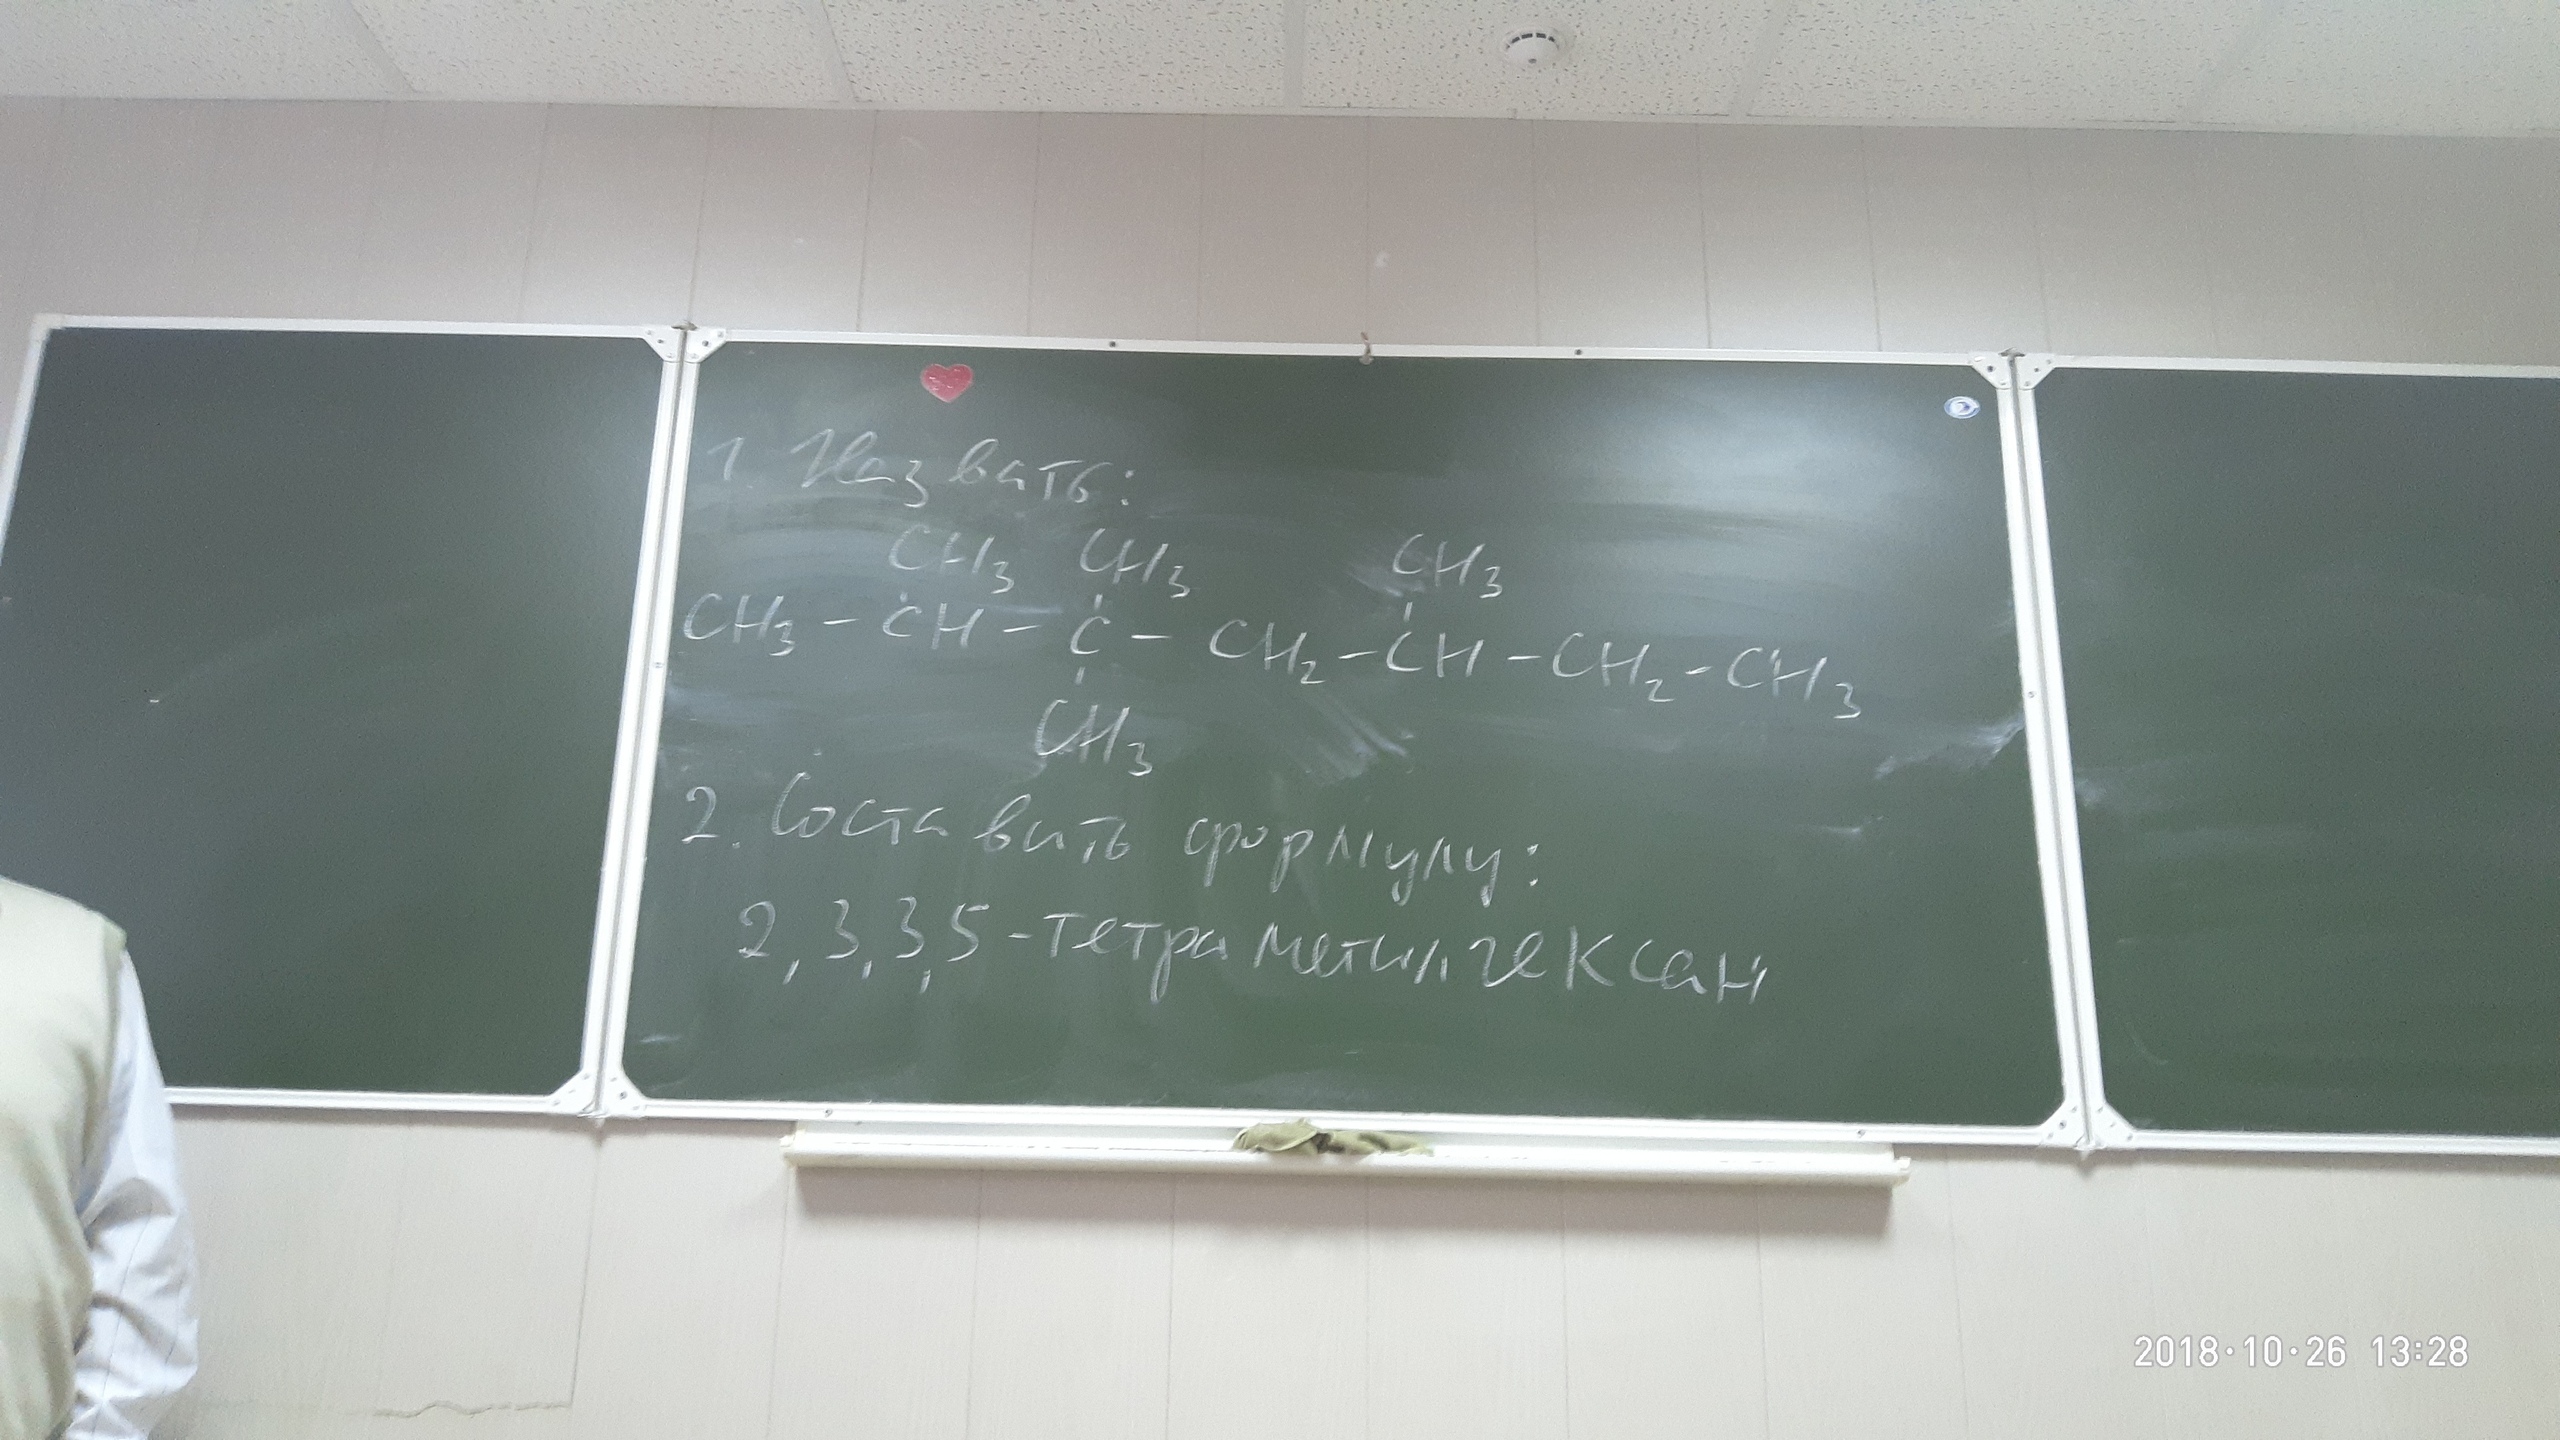 1. Назвать:
CH3 CH3 CH3
CH3 - CH - C - CH2 - CH - CH2 - CH3
CH3
2. Составить формулу:
2,3,3,5-тетраметилгексан
2018·10·26 13:28